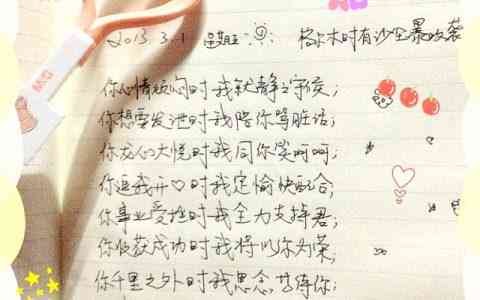 2013.3.1 星期五 格尔木时有沙尘暴攻袭
M&G
你心情烦闷时我就静静守候；
你想要发泄时我陪你骂脏话；
你龙心大悦时我同你笑呵呵；
你逗我开♡时我定愉快配合；
你事业受挫时我全力支持君；
你收获成功时我将以你为荣，
你千里之外时我思念等待你；